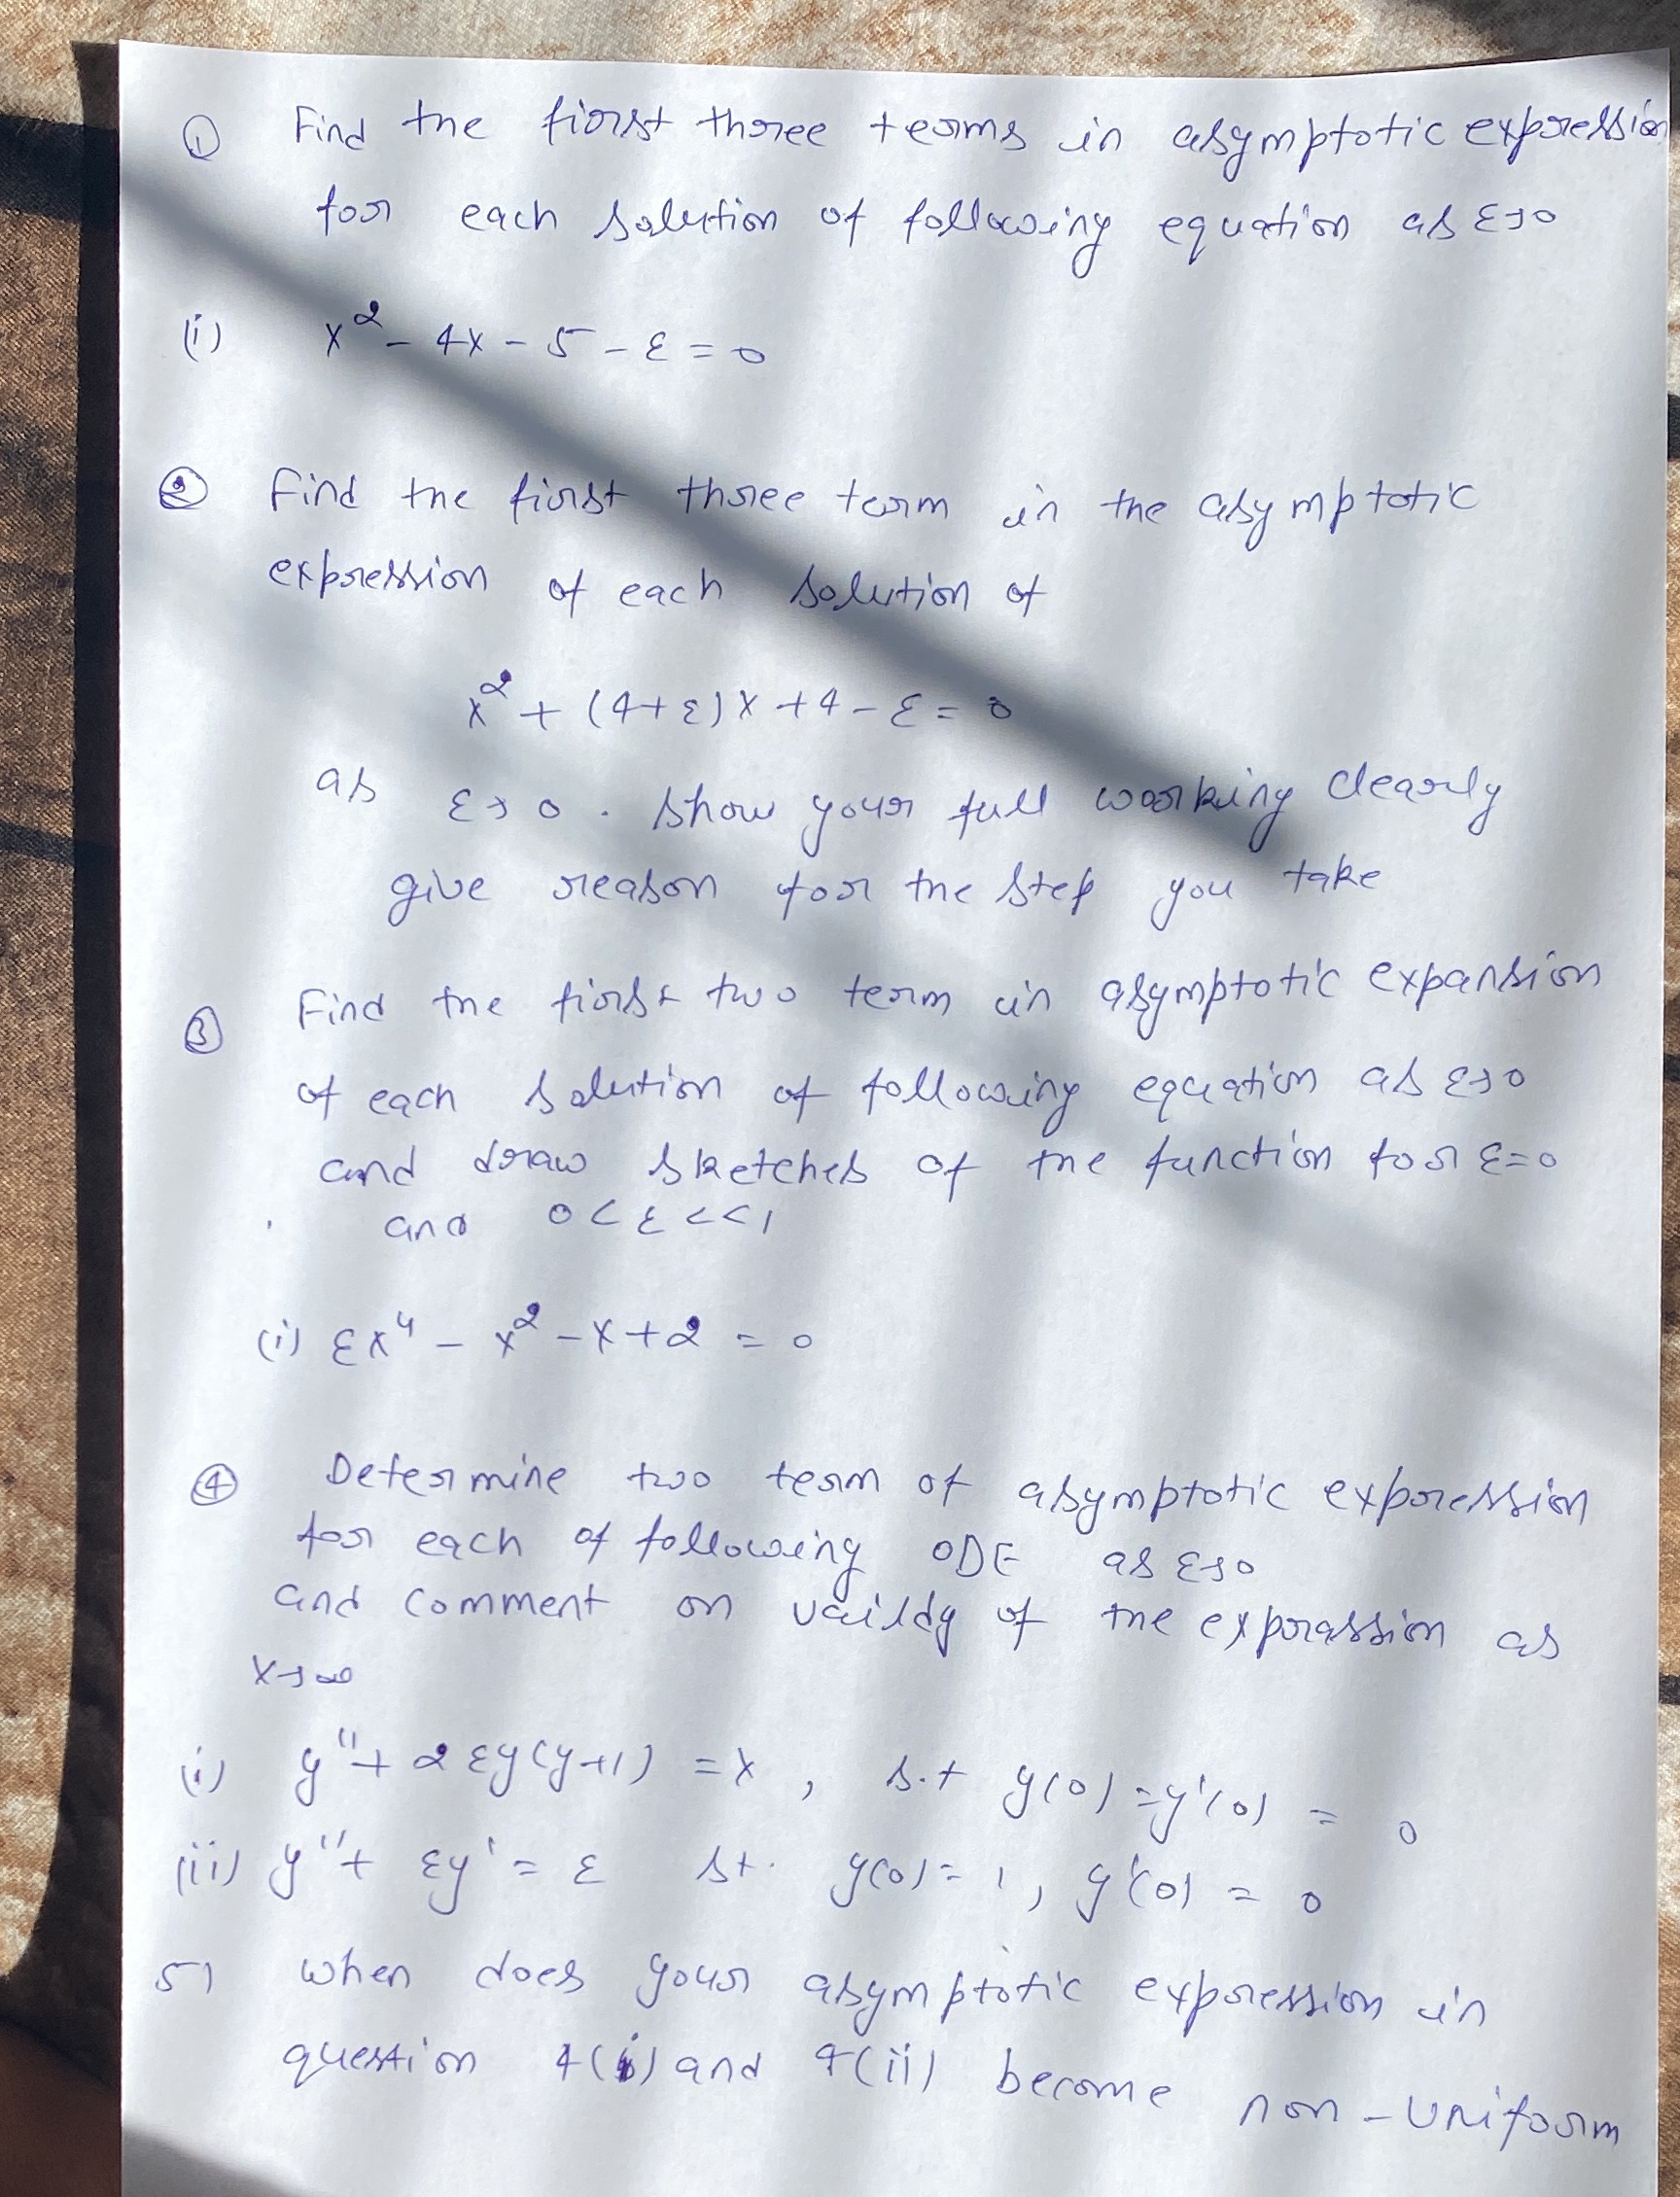 ① Find the first three terms in asymptotic expression
for each solution of following equation as ε→0
(i) x² - 4x - 5 - ε = 0
② Find the first three term in the asymptotic
expression of each solution of
x² + (4+ε)x + 4 - ε = 0
as ε→0. Show your full working clearly
give reason for the step you take
③ Find the first two term in asymptotic expansion
of each solution of following equation as ε→0
and draw sketches of the function for ε=0
and 0<ε<<1
(i) εx⁴ - x² - x + 2 = 0
④ Determine two term of asymptotic expression
for each of following ODE as ε→0
and comment on vaildy of the exprassion as
x→∞
(i) y'' + 2εy(y+1) = x, s.t y(0) = y'(0) = 0
(ii) y'' + εy' = ε st. y(0) = 1, y'(0) = 0
5) when does your asymptotic expression in
question 4(i) and 4(ii) become non-uniform